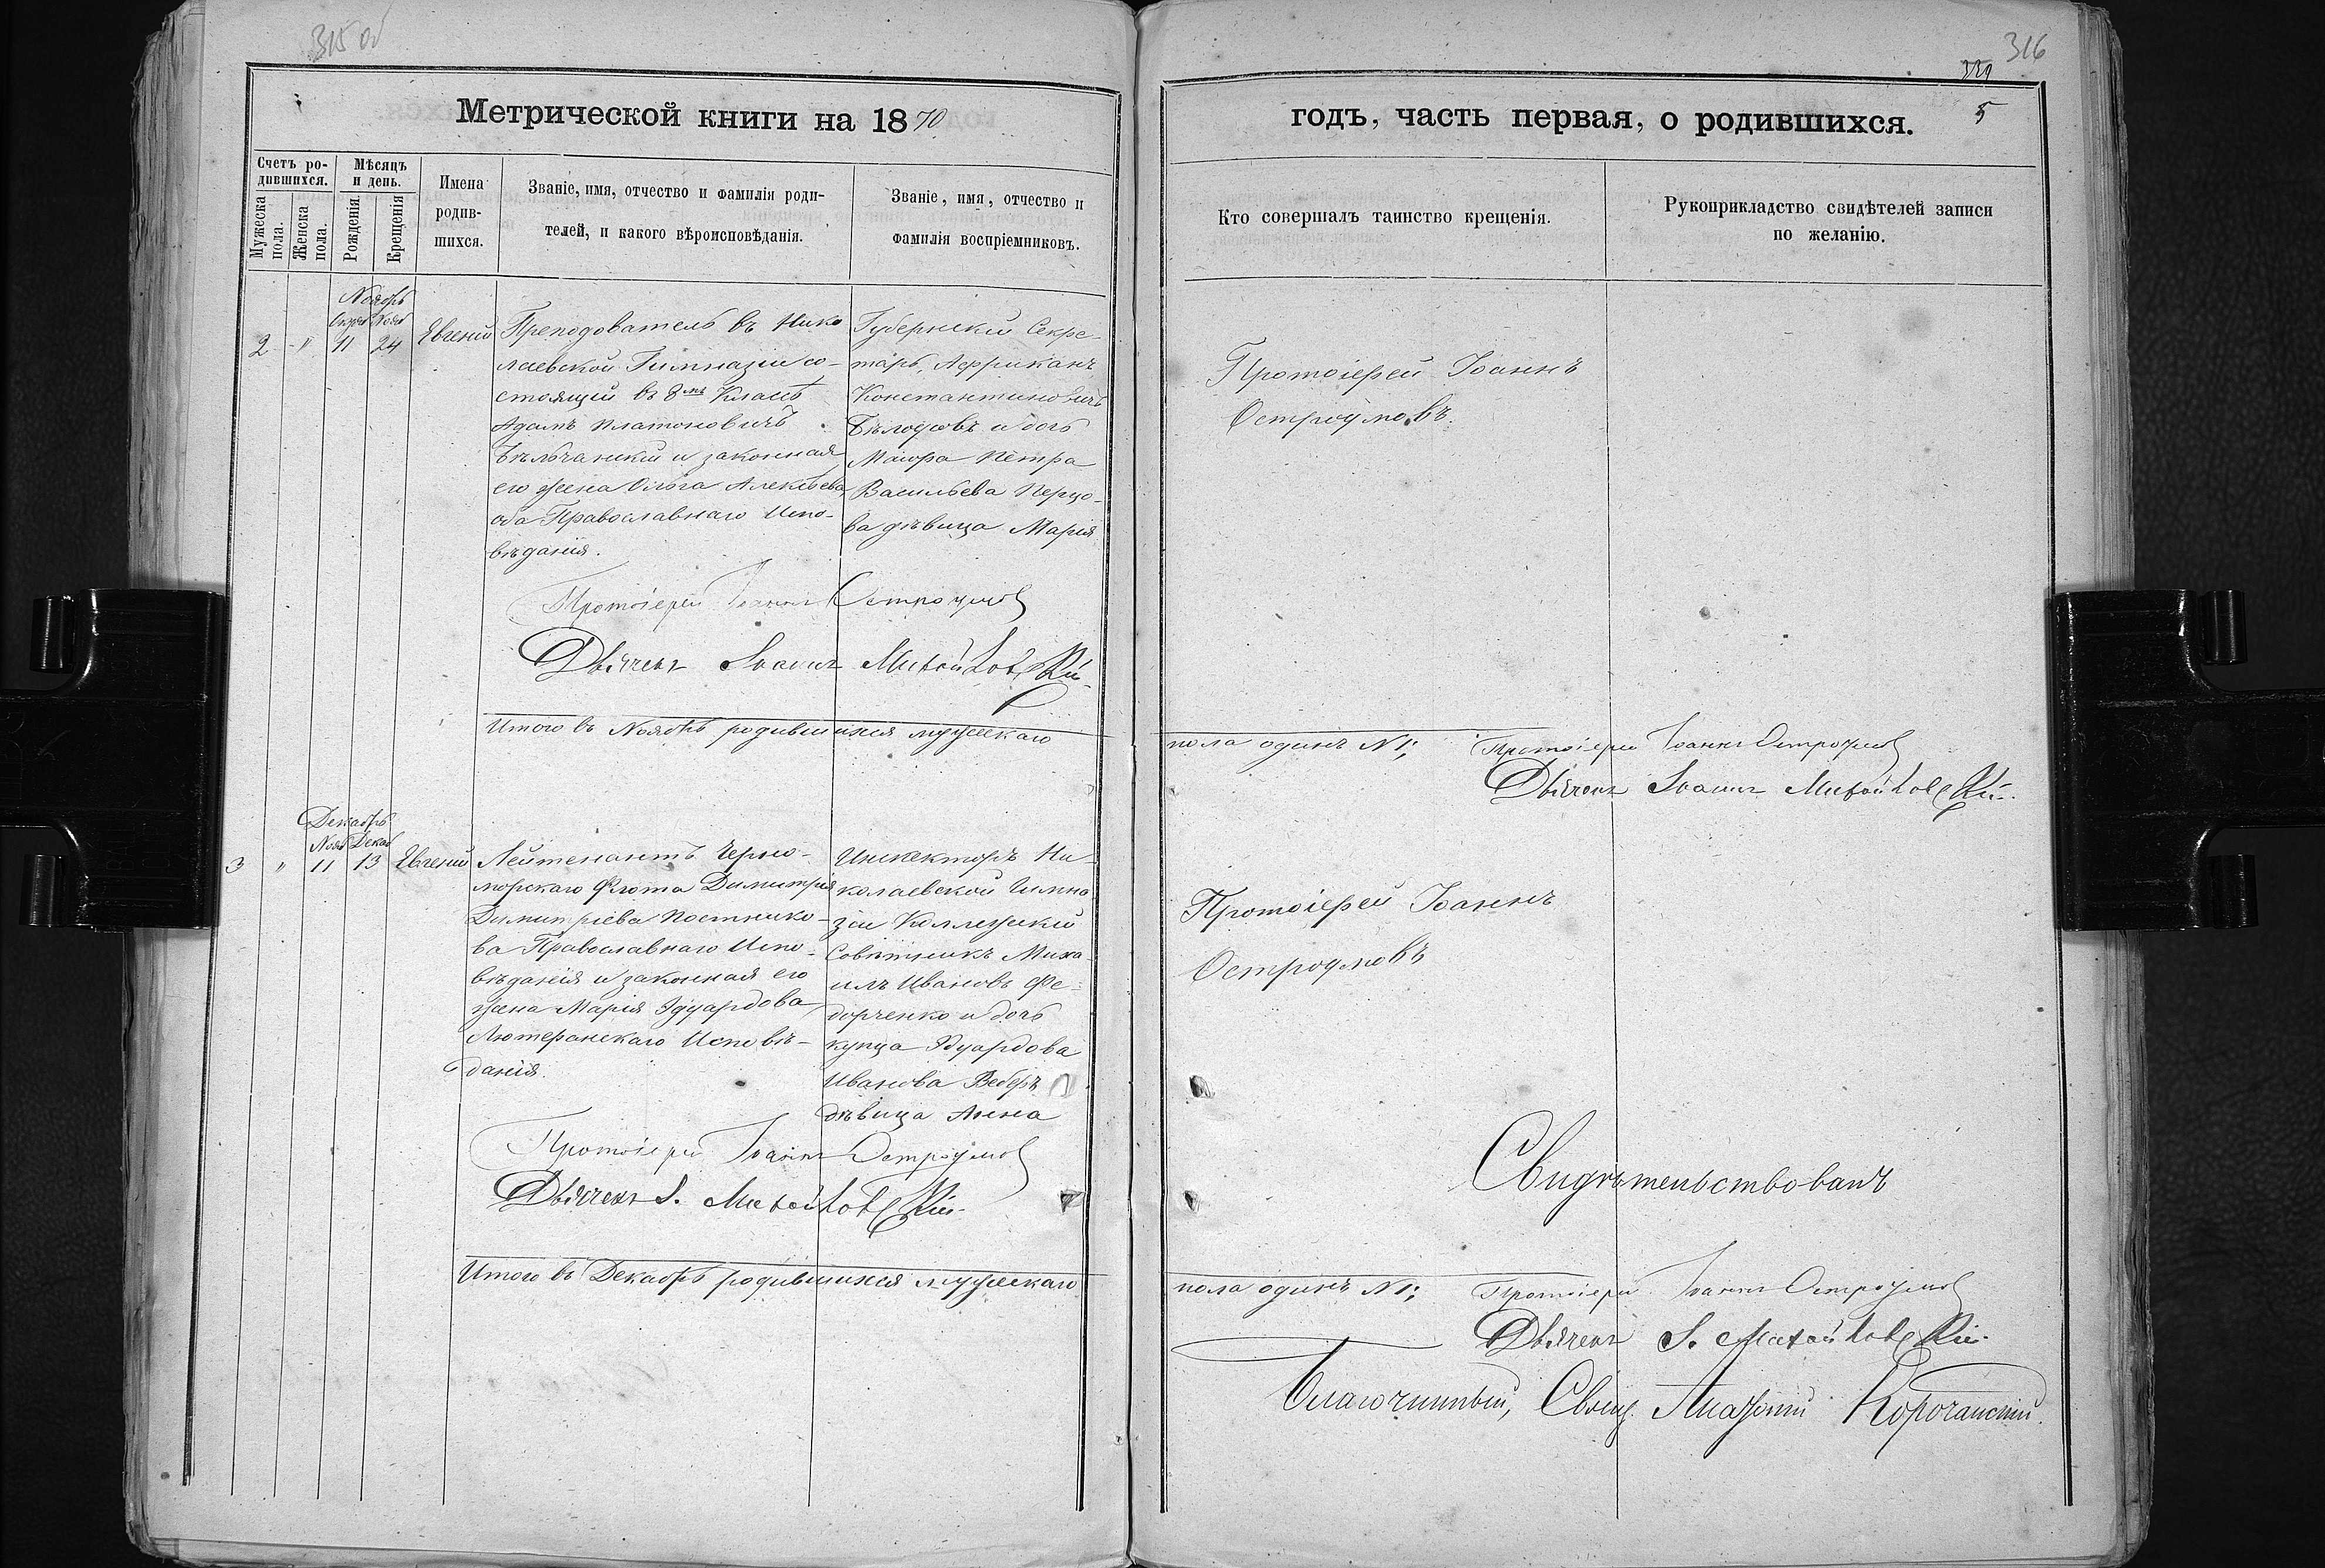 315 об
316
339
5
Метрической книги на 1870
годъ, часть первая, о родившихся.
Счетъ ро-
дившихся.
Мужеска пола.
Женска пола.
Мѣсяцъ
и день.
Рожденія.
Крещенія
Имена
родив-
шихся.
Званіе, имя, отчество и фамилія роди-
телей, и какого вѣроисповѣданія.
Званіе, имя, отчество и
фамилія воспріемниковъ.
Кто совершалъ таинство крещенія.
Рукоприкладство свидѣтелей записи
по желанію.
Ноябрь
Октяб Нояб
2 " 11 24 Евгеній
Преподователь въ Нико
лаевской Гимназіи со-
стоящій въ 8мъ Классѣ
Адамъ Платоновичъ
Бѣльчанскій и законная
его жена Ольга Алексѣева
оба Православнаго Испо-
вѣданія.
Губернскій Секре-
тарь, Африканъ
Константиновичъ
и дочь
Маіора Петра
Васильева Перцо-
ва дѣвица Марія
Протоіерей Іоаннъ
Остроумовъ.
Протоіерей Іоаннъ Остроумов
Дьячекъ Іоаннъ
Итого въ Ноябрѣ родившихся мужескаго
пола одинъ N 1;
Протоіерей Іоаннъ Остроумов
Дьячекъ Іоаннъ
Декабрь
Нояб Декаб
3 " 11 13 Евгеній
Лейтенантъ Черно-
морскаго Флота Димитрія
Димитріева Постнико-
ва Православнаго Испо-
вѣданія и законная его
жена Марія Эдуардова
Лютеранскаго Исповѣ-
данія.
Инспекторъ Ни-
колаевской Гимна
зіи Коллежскій
Совѣтникъ Миха-
илъ Ивановъ Фе-
дорченко и дочь
купца Эдуардова
Иванова Веберъ
дѣвица Анна
Протоіерей Іоаннъ
Остроумовъ
Протоіерей Іоаннъ Остроумов
Дьячекъ І.
Свидѣтельствовалъ
Итого въ Декабрѣ родившихся мужескаго
пола одинъ N 1;
Протоіерей Іоаннъ Остроумов
Дьячекъ І.
Благочинный, Свящ. Корочанскій.